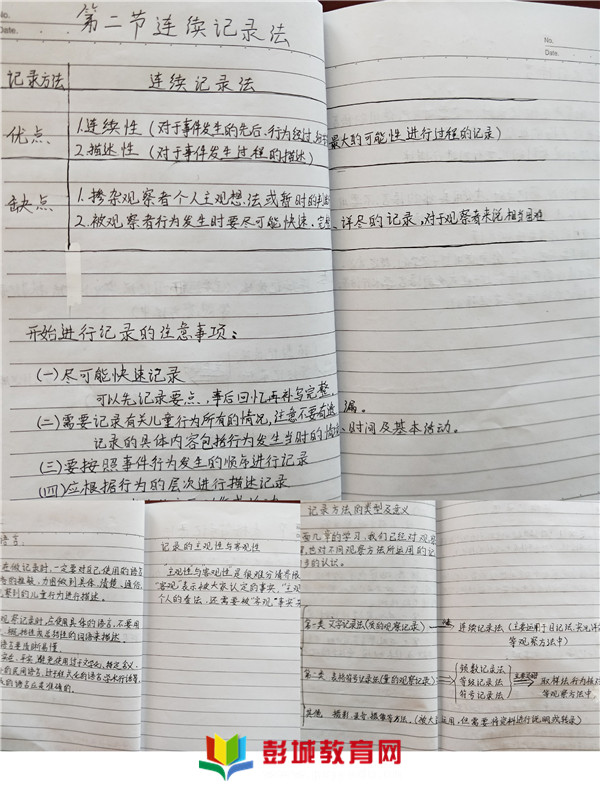 第二节连续记录法
No.
Date.
No.
Date.
记录方法 连续记录法
优点 1.连续性(对于事件发生的先后、行为经过、 最大的可能性进行过程的记录)
2.描述性(对于事件发生过程的描述)
缺点 1.掺杂观察者个人主观想法或暂时的
2.被观察者行为发生时要尽可能快速、完整、详尽的记录,对于观察者来说相当困难
开始进行记录的注意事项:
(一)尽可能快速记录
可以先记录要点,事后回忆再补写完整。
(二)需要记录有关儿童行为所有的情况,注意不要有遗漏。
记录的具体内容包括行为发生当时的情 、时间及基本活动。
(三)要按照事件行为发生的顺序进行记录
(四)应根据行为的层次进行描述记录
语言:
在做记录时,一定要对自己使用的语言
的推敲,力图做到具体、清楚、
察到的儿童行为进行描述。
观察记录时,应使用具体的语言,不要用
概括性或总结性的词语来描述
语言要清晰易懂
记录的主观性与客观性
"主观性与客观性"是很难分清界限
"客观"表示被大家认定的事实,"主观
个人的看法,还需要被"客观"事实
记录方法的类型及意义
面几章的学习,我们已经对观察
对不同观察方法所运用的记
的认识。
第一类 文字记录法(质的观察记录) 连续记录法(主要运用于日记法、实况详
等观察方法中)
第二类 表格符号记录法(量的观察记录)
频数记录法
等级记录法
符号记录法
取样法、行为检
等观察方法中
其他 摄影、录音、摄像等方法。(被大 运用,但需要将资料进行说明或转录)
彭城教育网